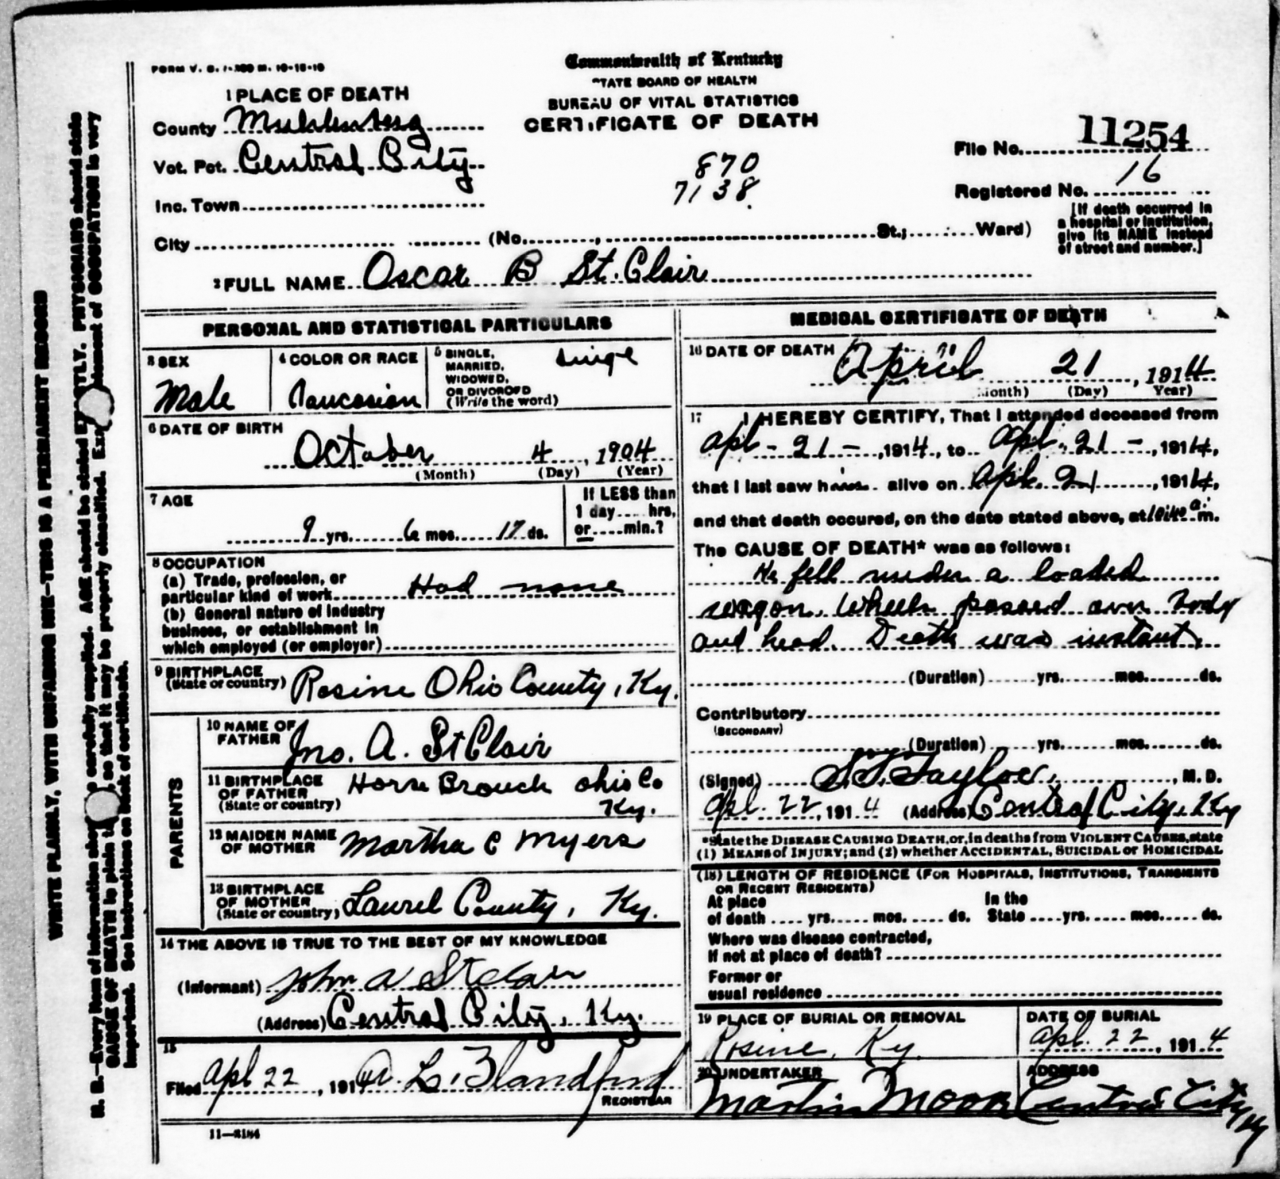 FORM V. S. 1-300 M. 10-10-10
Commonwealth of Kentucky
TATE BOARD OF HEALTH
BUREAU OF VITAL STATISTICS
CERTIFICATE OF DEATH
1 PLACE OF DEATH
County Muhlenberg
Vot. Pct. Central City
Inc. Town
City (No. , St.; Ward)
870
7138
File No. 11254
Registered No. 16
[If death occurred in
a hospital or institution,
give its NAME instead
of street and number.]
2 FULL NAME Oscar B St. Clair
PERSONAL AND STATISTICAL PARTICULARS
3 SEX
Male
4 COLOR OR RACE
Caucasian
5 SINGLE,
MARRIED,
WIDOWED,
OR DIVORCED
(Write the word)
Single
6 DATE OF BIRTH
October 4, 1904
(Month) (Day) (Year)
7 AGE
9 yrs. 6 mos. 17 ds.
If LESS than
1 day.... hrs.
or....min.?
8 OCCUPATION
(a) Trade, profession, or
particular kind of work Had none
(b) General nature of industry
business, or establishment in
which employed (or employer)
9 BIRTHPLACE
(State or country) Rosine Ohio County, Ky.
PARENTS
10 NAME OF
FATHER Jno. A. St Clair
11 BIRTHPLACE
OF FATHER
(State or country) Horse Branch Ohio Co
Ky.
12 MAIDEN NAME
OF MOTHER Martha C Myers
13 BIRTHPLACE
OF MOTHER
(State or country) Laurel County, Ky.
14 THE ABOVE IS TRUE TO THE BEST OF MY KNOWLEDGE
(Informant) John A St Clair
(Address) Central City, Ky.
15
Filed Apl 22, 1914 L. Blandford
REGISTRAR
11—2184
MEDICAL CERTIFICATE OF DEATH
16 DATE OF DEATH April 21, 1914
(Month) (Day) Year)
17 I HEREBY CERTIFY, That I attended deceased from
Apl - 21 -, 1914, to Apl. 21 -, 1914,
that I last saw him alive on Apl. 21, 1914,
and that death occured, on the date stated above, at a m.
The CAUSE OF DEATH* was as follows:
He fell under a loaded
wagon. Wheels passed over body
and head. Death was instant.
(Duration) yrs. mos. ds.
Contributory
(SECONDARY)
(Duration) yrs. mos. ds.
(Signed) Taylor, M. D.
Apl. 22, 1914 (Address) Central City, Ky
*State the DISEASE CAUSING DEATH, or, in deaths from VIOLENT CAUSES, state
(1) MEANS of INJURY; and (2) whether ACCIDENTAL, SUICIDAL or HOMICIDAL
(18) LENGTH OF RESIDENCE (FOR HOSPITALS, INSTITUTIONS, TRANSIENTS
OR RECENT RESIDENTS)
At place In the
of death .... yrs. mos. ds. State .... yrs. mos. ds.
Where was disease contracted,
If not at place of death?
Former or
usual residence
19 PLACE OF BURIAL OR REMOVAL
Rosine, Ky.
DATE OF BURIAL
Apl. 22, 1914
20 UNDERTAKER
Martin Moore
ADDRESS
Central City Ky
WRITE PLAINLY, WITH UNFADING INK—THIS IS A PERMANENT RECORD
N. B.—Every item of information should be carefully supplied. AGE should be stated EXACTLY. PHYSICIANS should state
CAUSE OF DEATH in plain terms, so that it may be properly classified. Exact statement of OCCUPATION is very
important. See instructions on back of certificate.